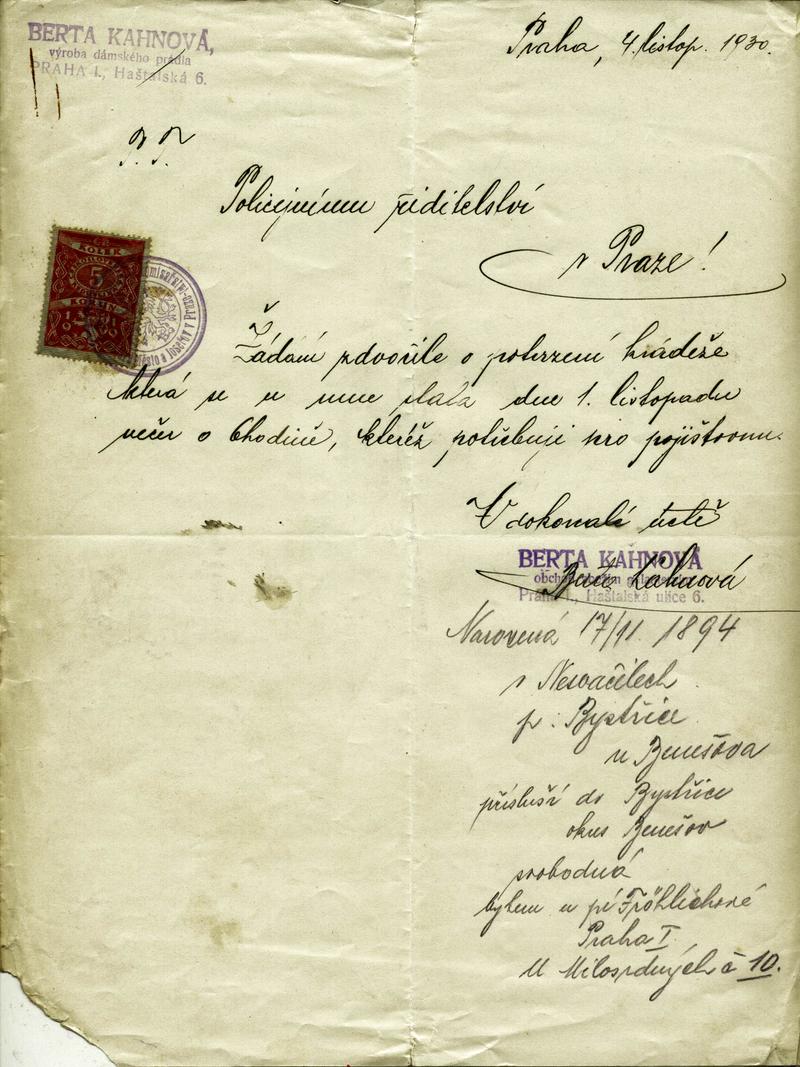 BERTA KAHNOVÁ,
výroba dámského prádla
PRAHA I., Haštalská 6.
Praha, 4. listop. 1930.
P. T.
Policejnímu ředitelství
v Praze!
KOLEK
5
KORUN
Žádám zdvořile o potvrzení krádeže
která se u mne stala dne 1. listopadu
večer o 6hodině, kteréž potřebuji pro pojišťovnu.
V dokonalé úctě
BERTA KAHNOVÁ
Praha I., Haštalská ulice 6.
Berta Kahnová
Narozená 17/11. 1894
v Nesvačilech
p. Bystřice
u Benešova
přísluší do Bystřice
okres Benešov
svobodná
bytem u pí Fröhlichové
Praha I.
U Milosrdných č 10.